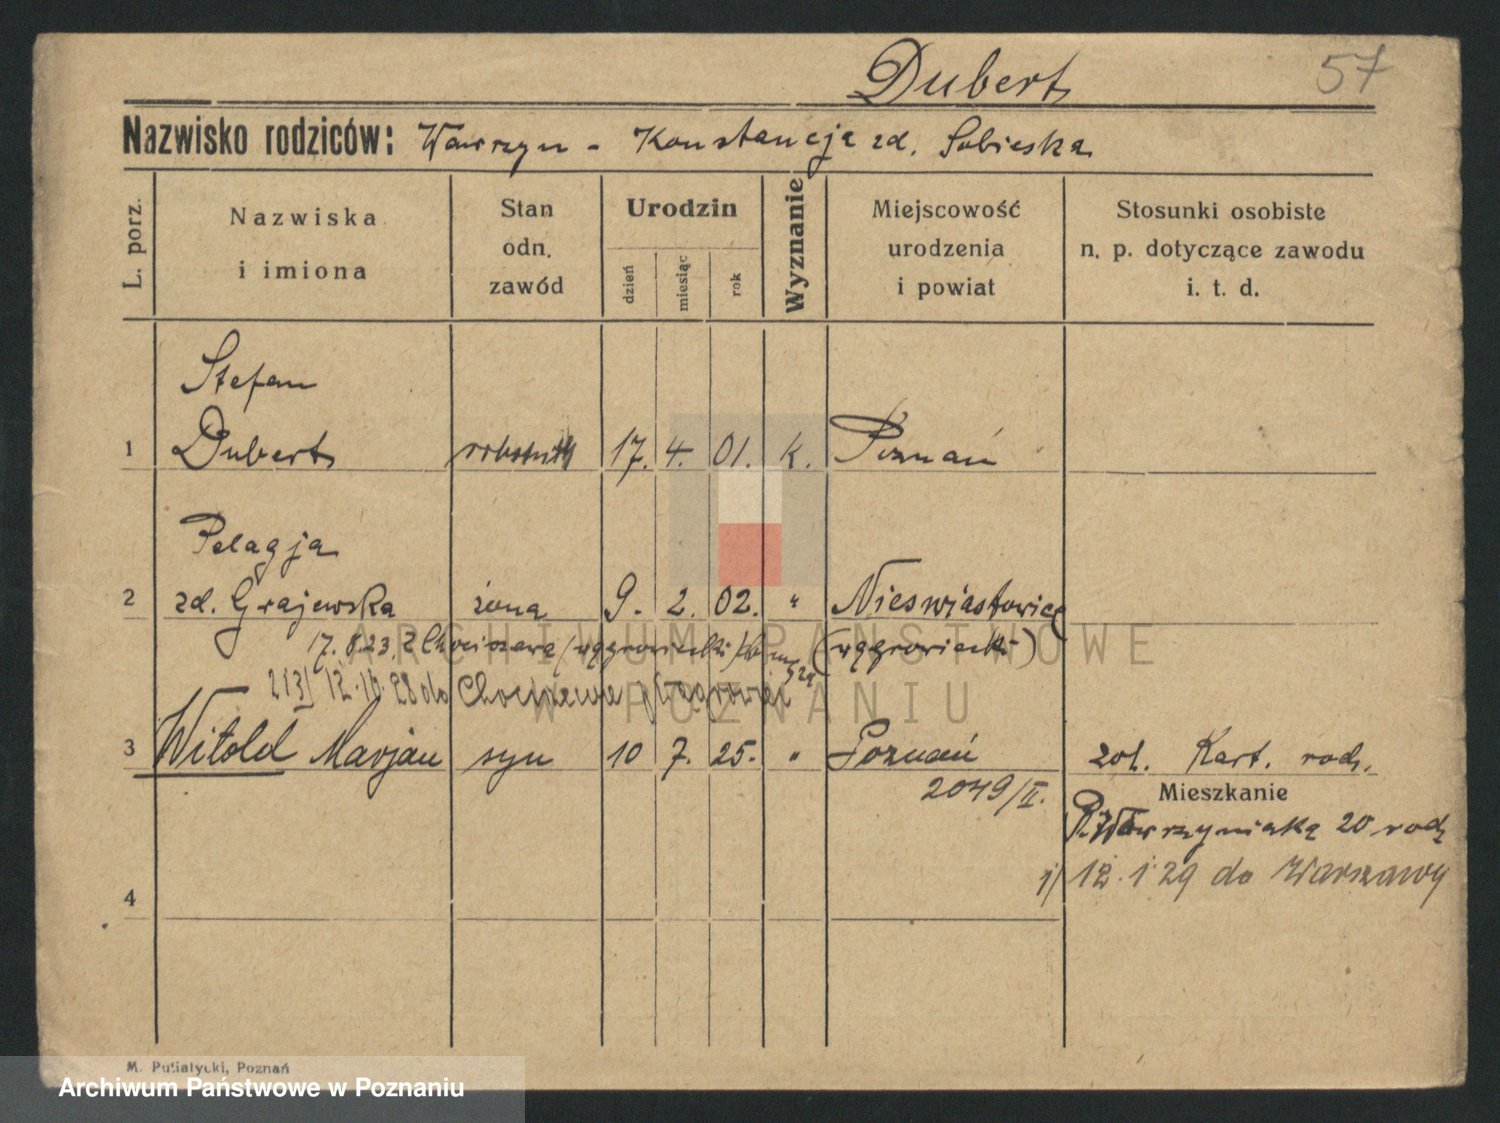 Dubert
57
Nazwisko rodziców: Wawrzyn - Konstancja zd. Sobieska
L. porz.
Nazwiska
i imiona
Stan
odn.
zawód
Urodzin
dzień
miesiąc
rok
Wyznanie
Miejscowość
urodzenia
i powiat
Stosunki osobiste
n. p. dotyczące zawodu
i. t. d.
Stefan
1 Dubert robotnik 17. 4. 01. k. Poznań
Pelagja
2 zd. Grajewska żona 9. 2. 02. " Nieswiastowice
17. 8. 23. z (wągrowiecki)
12. 10. 28 do
3 Witold Marjan syn 10 7. 25. " Poznań zob. Kart. rodz.
2049/II.
Mieszkanie
P. Wawrzyniaka 20 rodz
1/ 12. 1 29 do Warszawy
4
M. Putiatycki, Poznań
ARCHIWUM PAŃSTWOWE
W POZNANIU
Archiwum Państwowe w Poznaniu